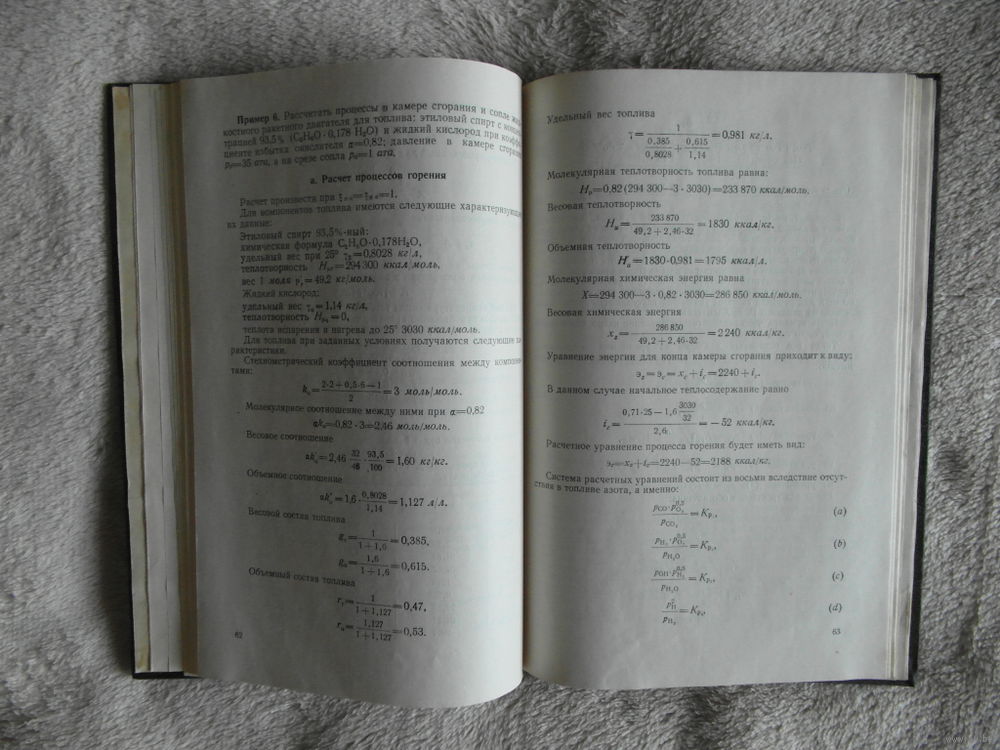 Пример 6. Рассчитать процессы в камере сгорания и сопле жид-
костного ракетного двигателя для топлива: этиловый спирт с
трацией 93,5% (C₂H₆O·0,178 H₂O) и жидкий кислород при коэффи-
циенте избытка окислителя α=0,82; давление в камере сгорания
p₂=35 ата, а на срезе сопла =1 ата.
а. Расчет процессов горения
Расчет произвести при =1.
Для компонентов топлива имеются следующие характеризующие
их данные:
Этиловый спирт 93,5%-ный:
химическая формула C₂H₆O·0,178H₂O,
удельный вес при 25° γт=0,8028 кг/л,
теплотворность =294 300 ккал/моль,
вес 1 моля =49,2 кг/моль.
Жидкий кислород:
удельный вес =1,14 кг/л,
теплотворность =0,
теплота испарения и нагрева до 25° 3030 ккал/моль.
Для топлива при заданных условиях получаются следующие ха-
рактеристики.
Стехиометрический коэффициент соотношения между компонен-
тами:
k₀ = (2·2+0,5·6−1)/2 = 3 моль/моль.
Молекулярное соотношение между ними при α=0,82
αk₀=0,82·3=2,46 моль/моль.
Весовое соотношение
αk₀′=2,46 32/46 · 93,5/100 = 1,60 кг/кг.
Объемное соотношение
αk₀″=1,6· 0,8028/1,14 = 1,127 л/л.
Весовой состав топлива
gт = 1/(1+1,6) = 0,385,
gо = 1,6/(1+1,6) = 0,615.
Объемный состав топлива
rт = 1/(1+1,127) = 0,47,
rо = 1,127/(1+1,127) = 0,53.
62
Удельный вес топлива
γ = 1/(0,385/0,8028 + 0,615/1,14) = 0,981 кг/л.
Молекулярная теплотворность топлива равна:
=0,82 (294 300—3·3030)=233 870 ккал/моль.
Весовая теплотворность
Hи = 233 870/(49,2+2,46·32) = 1830 ккал/кг.
Объемная теплотворность
=1830·0,981=1795 ккал/л.
Молекулярная химическая энергия равна
X=294 300—3·0,82·3030=286 850 ккал/моль.
Весовая химическая энергия
= 286 850/(49,2+2,46·32) = 2240 ккал/кг.
Уравнение энергии для конца камеры сгорания приходит к виду:
=2240+iт.
В данном случае начальное теплосодержание равно
iт = (0,71·25−1,6 3030/32)/2,6 = −52 ккал/кг.
Расчетное уравнение процесса горения будет иметь вид:
=2240—52=2188 ккал/кг.
Система расчетных уравнений состоит из восьми вследствие отсут-
ствия в топливе азота, а именно:
pCO·pO₂^0,5 / pCO₂ = Kp₁, (a)
pH₂·pO₂^0,5 / pH₂O = Kp₂, (b)
pOH·pH₂^0,5 / pH₂O = Kp₃, (c)
pH² / pH₂ = Kp₄, (d)
63